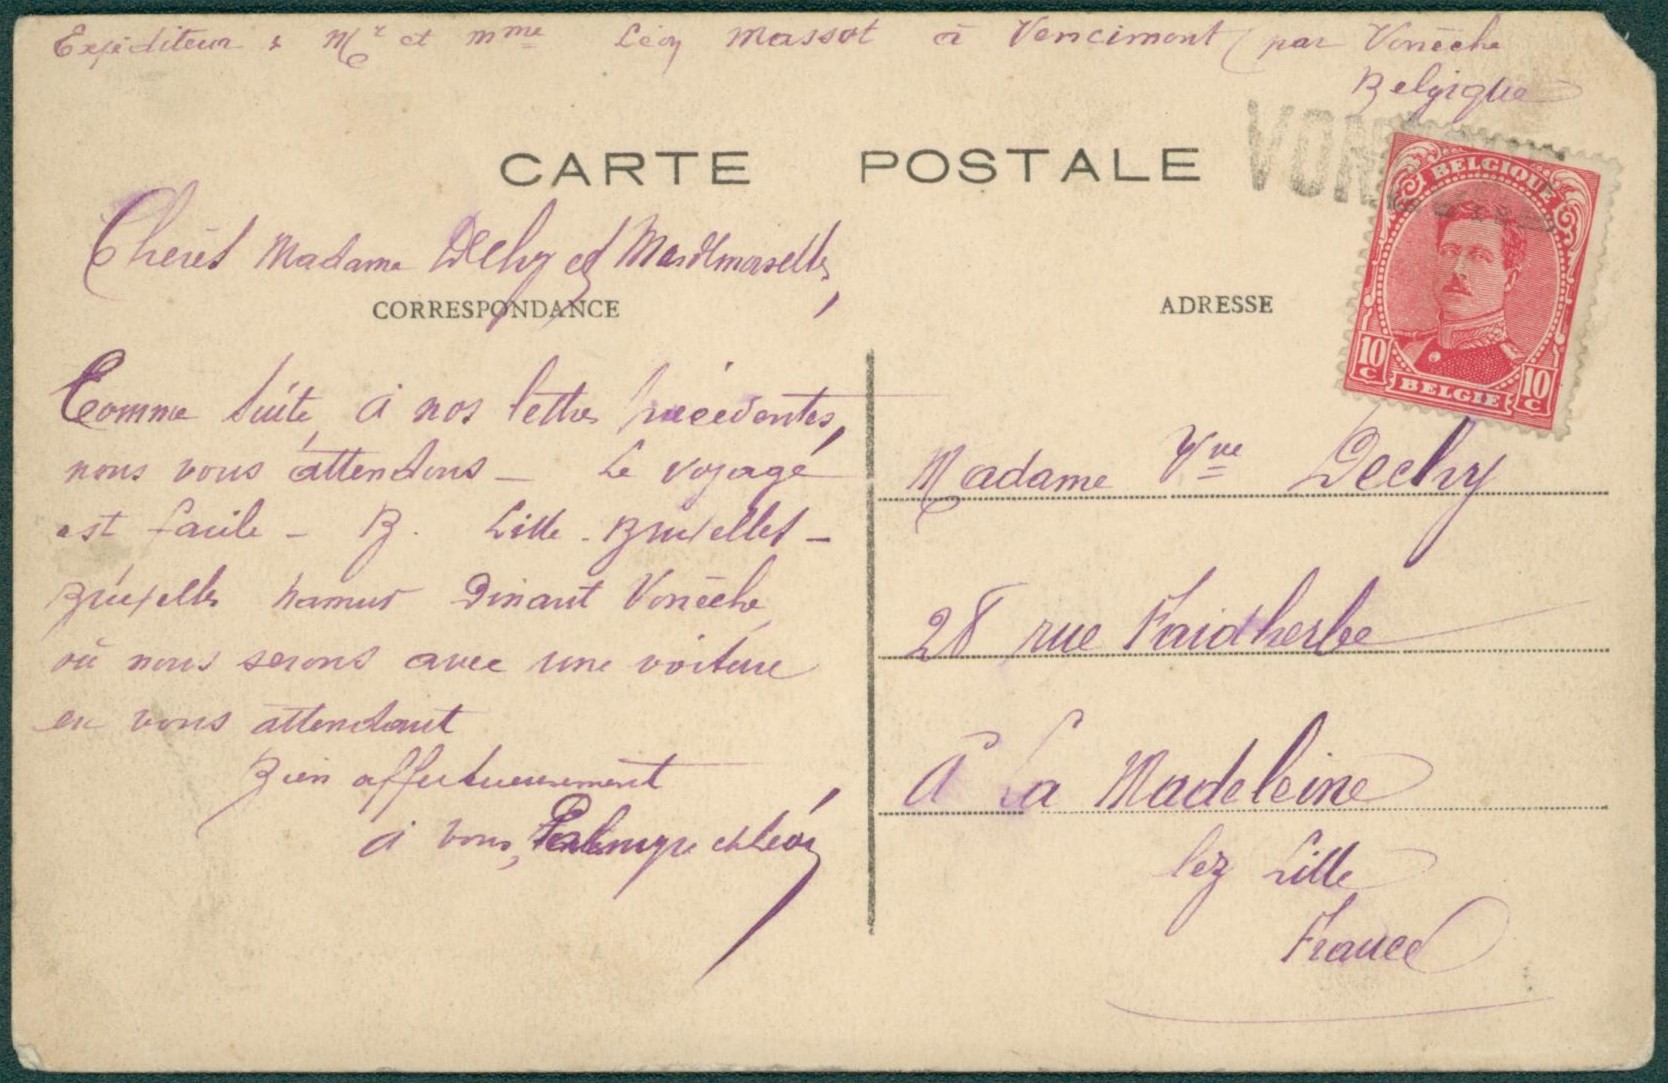 Expéditeur : Mr et Mme Léon Massot à Vencimont (par Vonèche
Belgique
CARTE POSTALE
VON
BELGIQUE
10 C
10 C
BELGIE
Cherès Madame Dechy et Mesdlmoiselles,
CORRESPONDANCE
ADRESSE
Comme suite, à nos lettres précédentes,
nous vous attendons - Le voyage
est facile - B. Lille - Bruxelles -
Bruxelles Namur Dinant Vonèche,
où nous serons avec une voiture
en vous attendant
Bien affectueusement
à vous, Palmyre et Léon
Madame Vve Dechy
28 rue Faidherbe
à La Madeleine
lez Lille
France